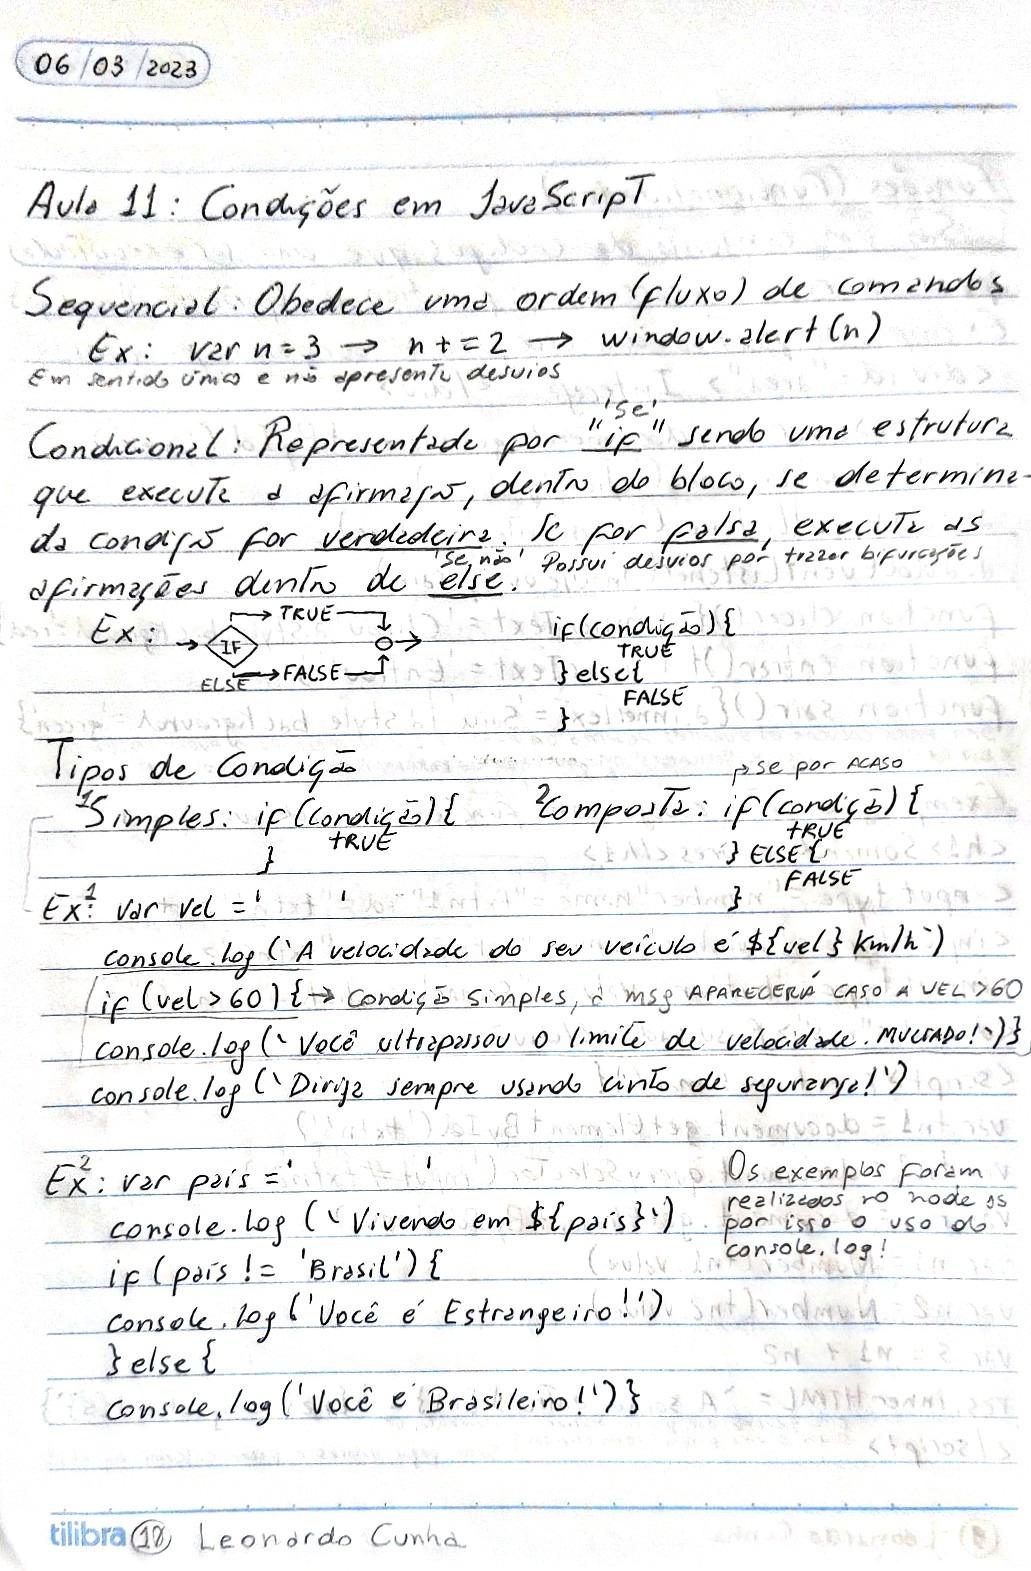 06/03/2023
Aula 11: Condições em JavaScript
Sequencial: Obedece uma ordem (fluxo) de comandos
Ex: var n = 3 → n += 2 → window.alert(n)
Em sentido único e não apresenta desvios
'Se'
Condicional: Representada por "if" sendo uma estrutura
que executa a afirmação, dentro do bloco, se determina-
da condição for verdadeira. Se for falsa, executa as
'Se, não' Possui desvios por trazer bifurcações
afirmações dentro de else.
Ex: → IF → TRUE → O → if(condição){
TRUE
ELSE → FALSE } else{
FALSE
}
Tipos de Condição
→ se por ACASO
¹Simples: if(condição){ ²Composta: if(condição){
TRUE TRUE
} } ELSE {
FALSE
}
Ex¹: var vel = ' '
console.log(`A velocidade do seu veículo é ${vel} Km/h`)
if (vel > 60) { → Condição simples, a msg APARECERÁ CASO A VEL > 60
console.log(`Você ultrapassou o limite de velocidade. MULTADO!`)}
console.log('Dirija sempre usando cinto de segurança!')
Ex²: var país = ' '
console.log(`Vivendo em ${país}`)
if(país != 'Brasil'){
console.log('Você é Estrangeiro!')
} else {
console.log('Você é Brasileiro!')}
Os exemplos foram
realizados no node js
por isso o uso do
console.log!
tilibra 18 Leonardo Cunha